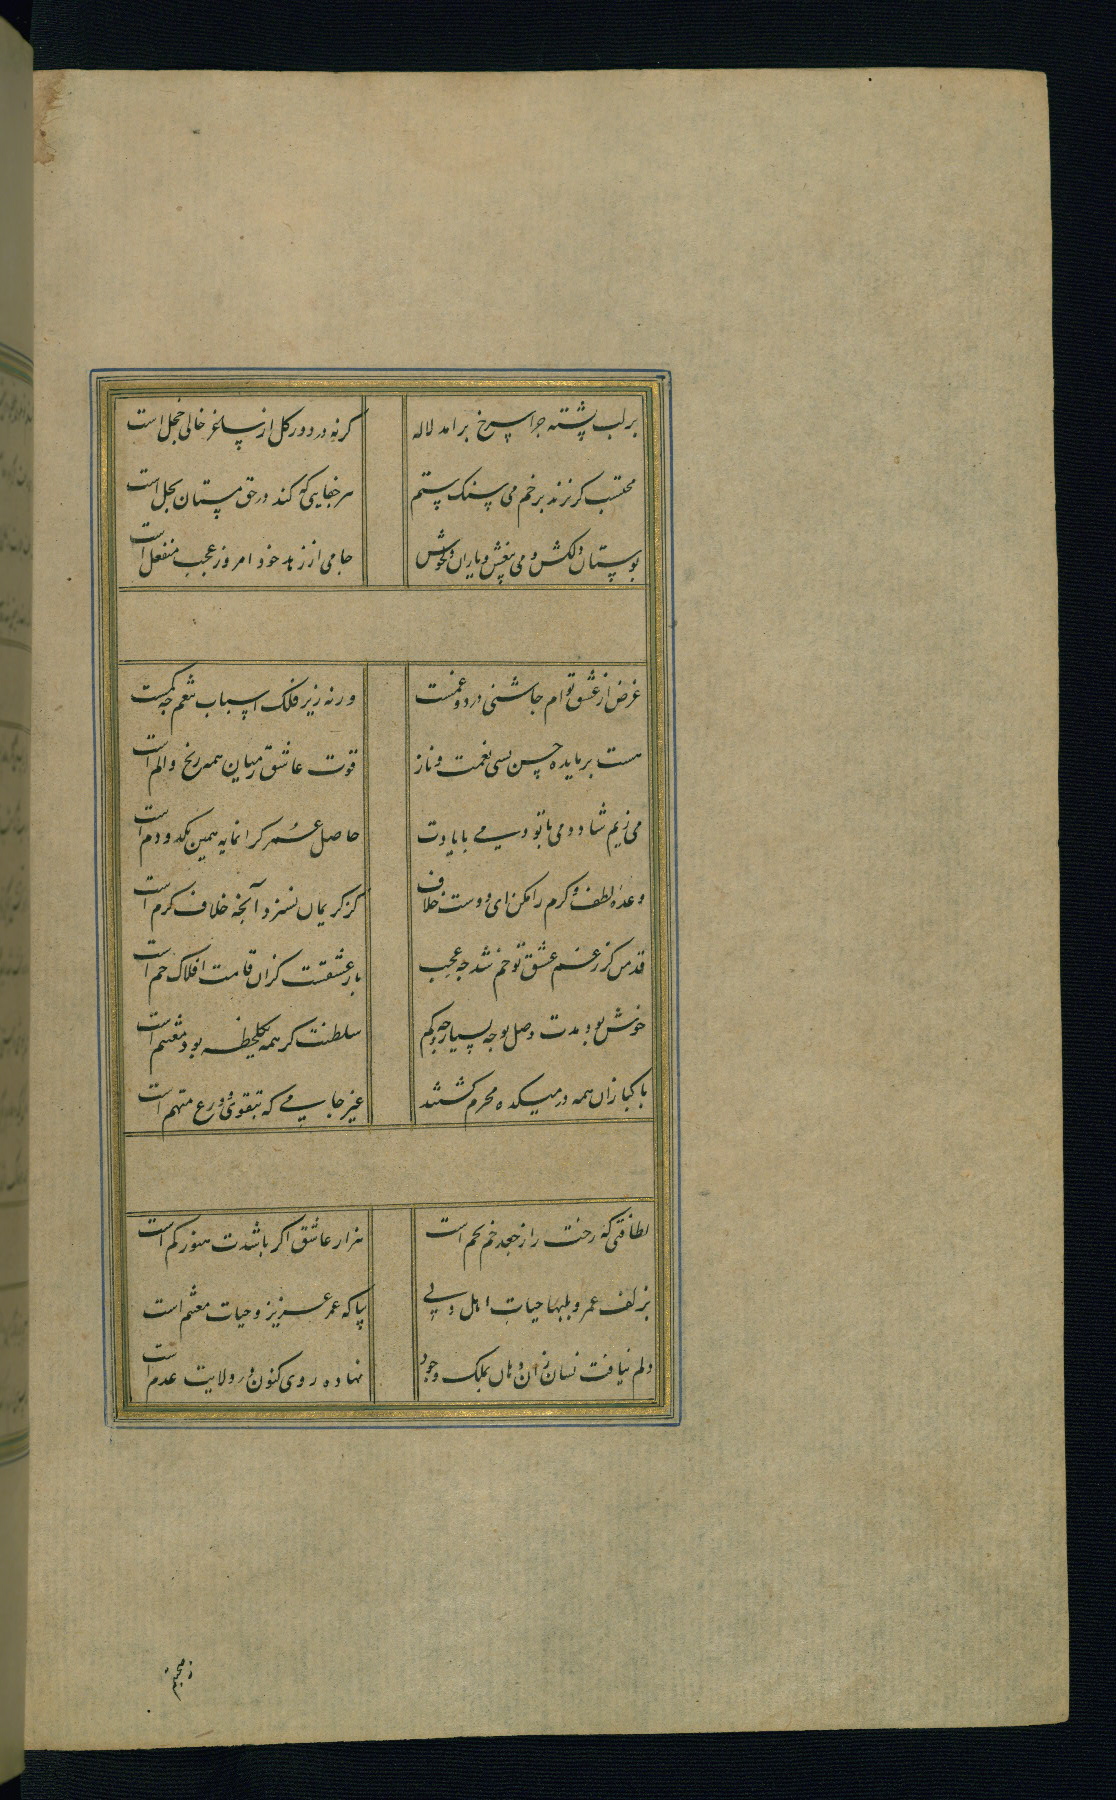 بر لب پشته چرا سرخ برامد لاله
کرنه در دور کل از ساغر خالی خجل است
محتسب کر زند بر خم می سنک ستم
هر خفایی که کند در حق مستان بحل است
بوستان دلکش و می بیغش و یاران دلخوش
جامی از زهد خود امروز عجب منفعل است
غرض از عشق توام چاشنی درد و غمست
ورنه زیر فلک اسباب تنعم چه کمست
هست بر مایده حسن بسی نعمت و ناز
قوت عاشق ز میان همه رنج و الم است
می زیم شاد دمی با تو و دمی با یادت
حاصل عمر کرانمایه همین یکدو دم است
وعدهٔ لطف و کرم را مکن ای دوست خلاف
کز کریمان نسزد آنچه خلاف کرم است
قد من کز غم عشق تو خم شد چه عجب
بار عشقست کزان قامت افلاک خم است
خوش بود مدت وصل تو چه بسیار و چه کم
سلطنت کر همه یکلحظه بود مغتنم است
پاکبازان همه در میکده محرم کشتند
غیر جامی که بتقوی و ورع متهم است
لطافتی که رخت را ز جعد خم بخم است
هزار عاشق اکر باشدت هنوز کم است
بزلف عمر و بلبها حیات اهل دلی
بیا که عمر عزیز و حیات مغتنم است
دلم نیافت نشان زان دهان بملک وجود
نهاده روی کنون در ولایت عدم است